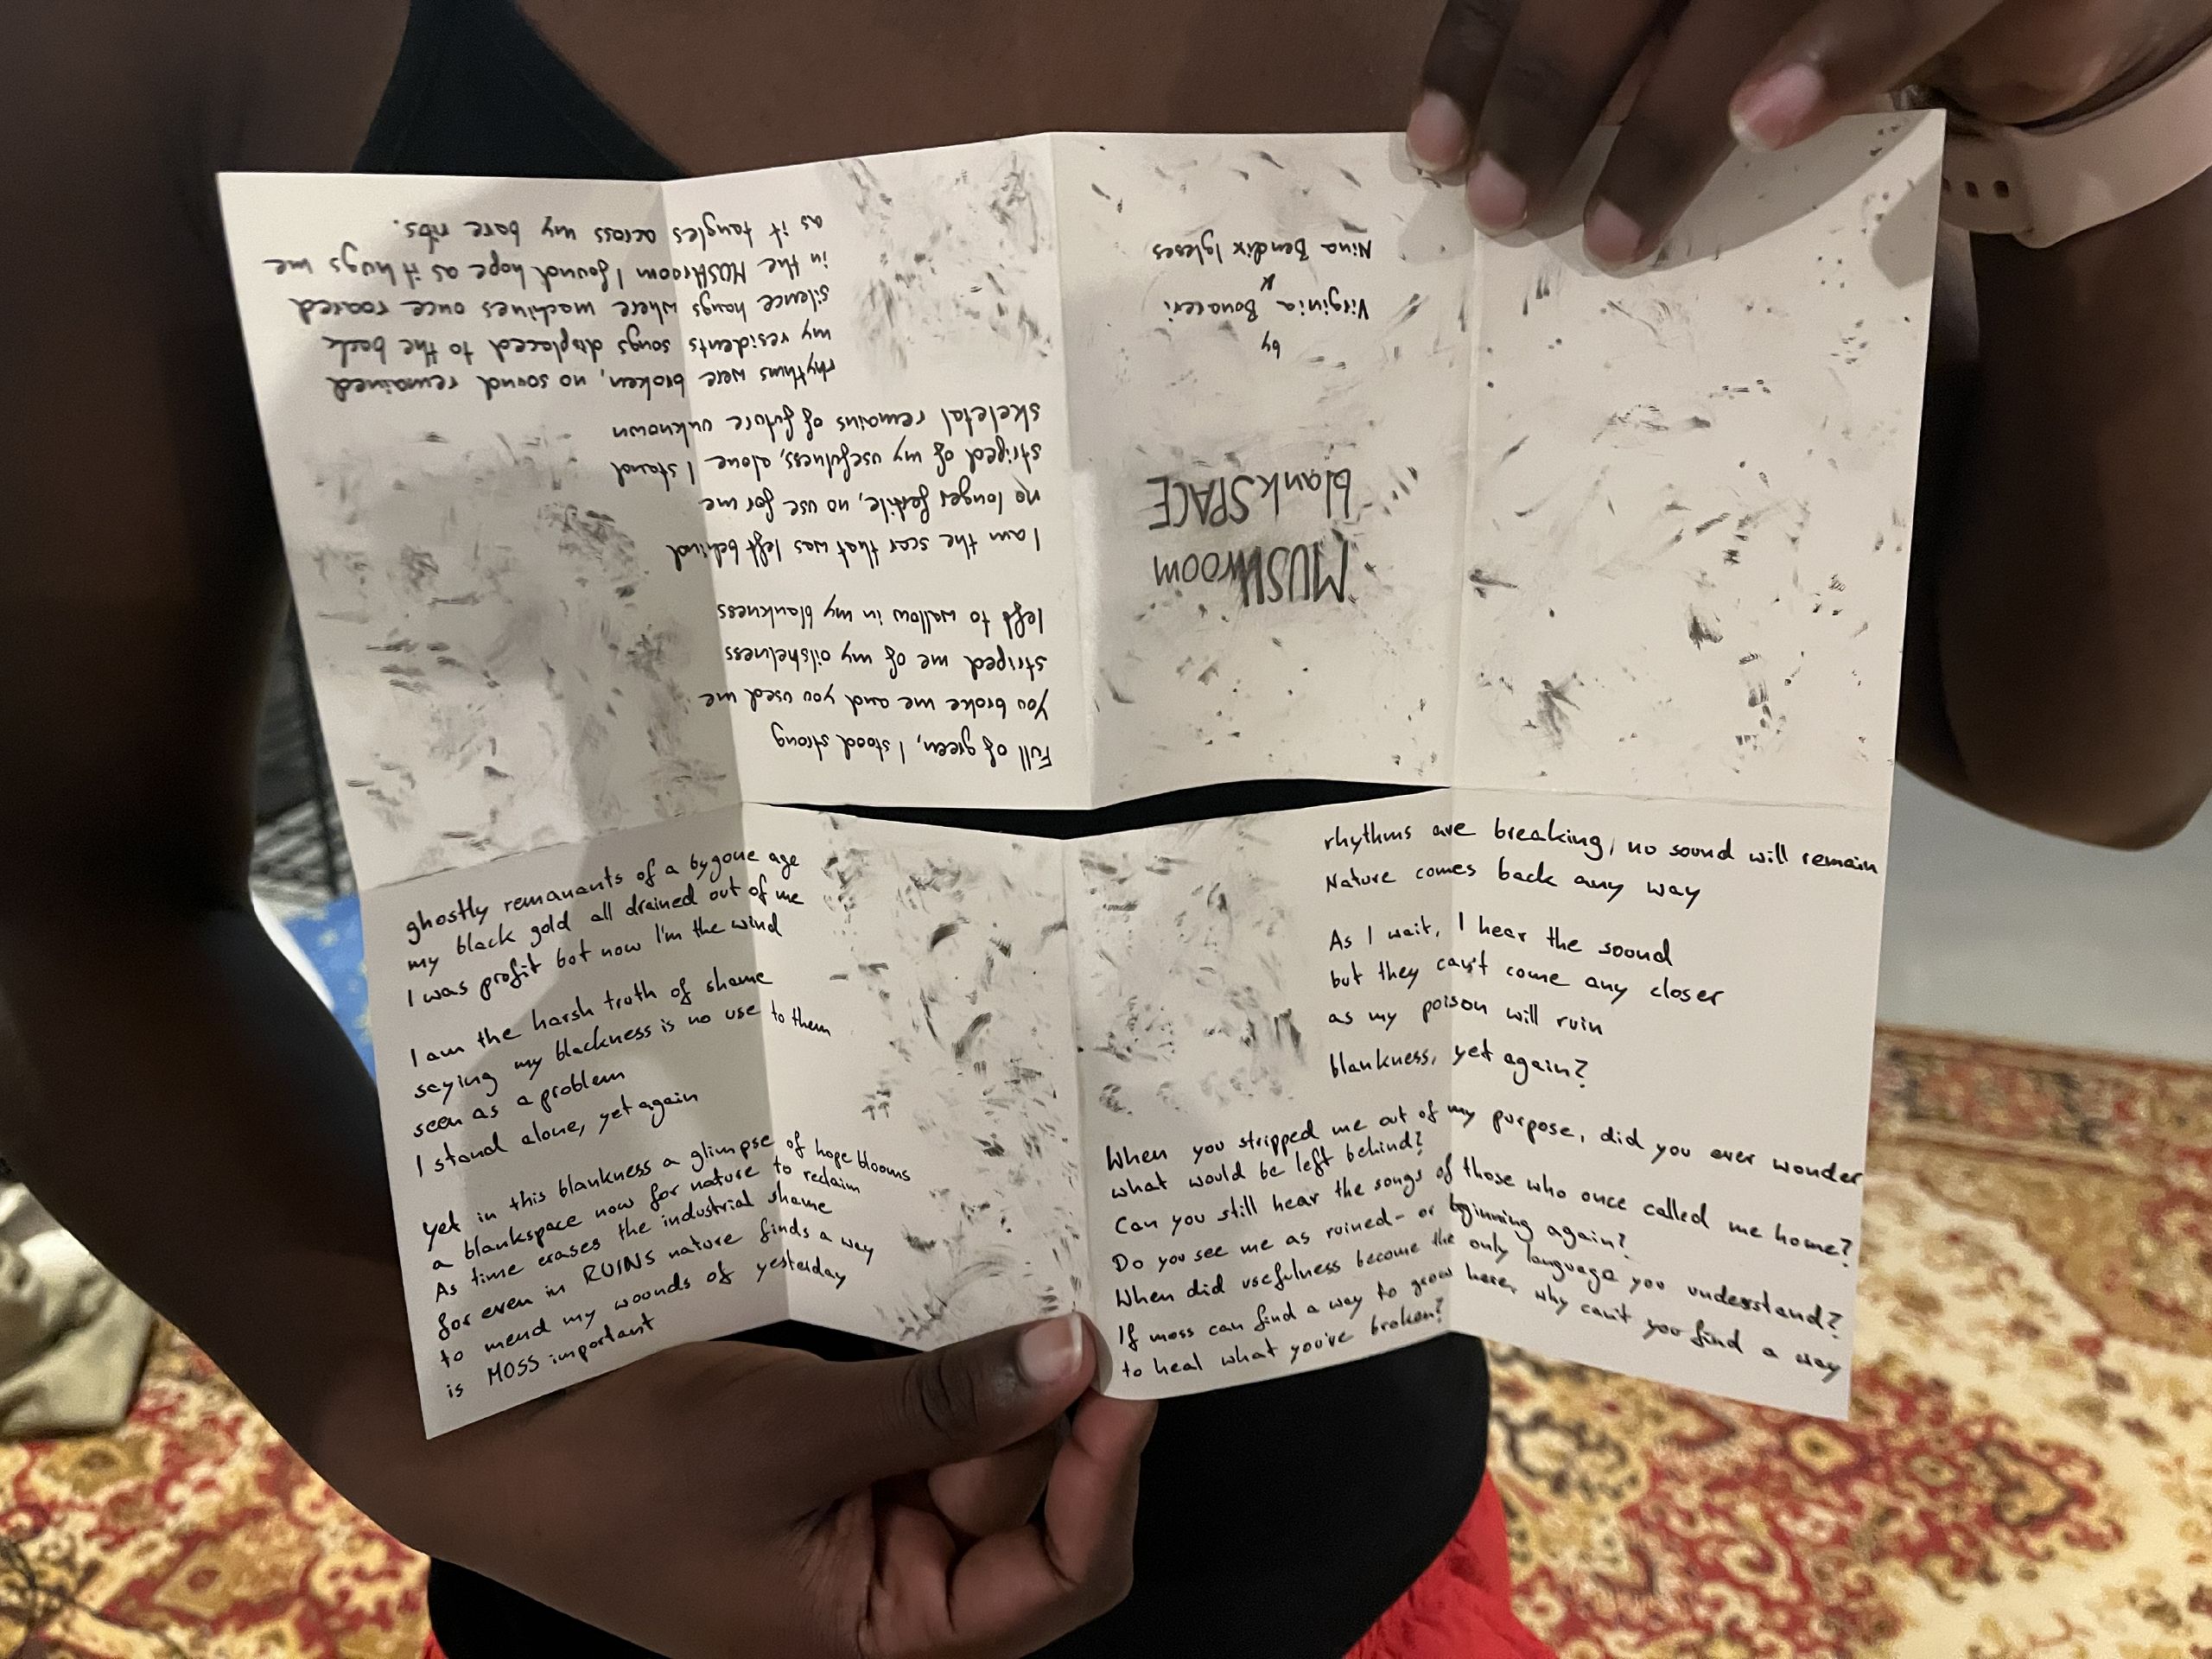 MUSHroom
blankSPACE
by
Virginia Bonaceri
&
Nina Bendix Igleses
Full of green, I stood strong
you broke me and you used me
striped me of my oilshelness
left to wallow in my blankness
I am the scar that was left behind
no longer fertile, no use for me
striped of my usefulness, alone I stand
skeletal remains of future unknown
rhythms were broken, no sound remained
my residents songs displaced to the back
silence hangs where machines once roared
in the MUSHroom I found hope as it hugs me
as it tangles across my bare ribs.
ghostly remanants of a bygone age
my black gold all drained out of me
I was profit but now I'm the wind
I am the harsh truth of shame
saying my blackness is no use to them
seen as a problem
I stand alone, yet again
yet in this blankness a glimpse of hope blooms
a blankspace now for nature to reclaim
As time erases the industrial shame
for even in RUINS nature finds a way
to mend my wounds of yesterday
is MOSS important
rhythms are breaking, no sound will remain
Nature comes back any way
As I wait, I hear the sound
but they can't come any closer
as my poison will ruin
blankness, yet again?
When you stripped me out of my purpose, did you ever wonder
what would be left behind?
Can you still hear the songs of those who once called me home?
Do you see me as ruined - or bginning again?
When did usefulness become the only language you understand?
If moss can find a way to grow here, why can't you find a way
to heal what you've broken?